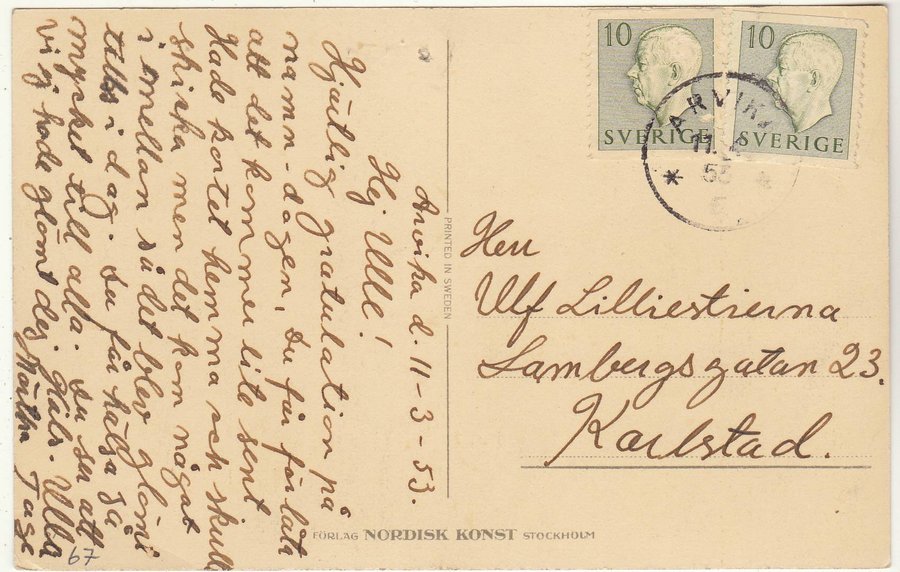 Arvika d. 11-3-53.
Hej Ulle!
Hjärtlig gratulation på
namn-dagen, Du får förlåta
att det kommer lite sent
Hade kortet hemma och skulle
skicka men det kom något
i emellan så det blev glömt
tills i dag. Du får hälsa så
mycket till alla. Du ser att
vi ej hade glömt dej
Häls. Ulla
Märtha Tage
67
PRINTED IN SWEDEN
FÖRLAG NORDISK KONST STOCKHOLM
10 SVERIGE
10 SVERIGE
ARVIKA
11.
Herr
Ulf Lilliestierna
Sambergsgatan 23.
Karlstad.